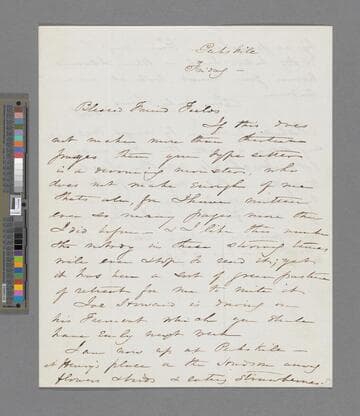 Peekskile
Friday —
Blessed Friend Fields
If this does
not make more than thirteen
pages then your type setter
is a devouring monster, who
does not make enough of me
that's also for I have written
ever so many pages more than
I did before — & I like this number
tho nobody in these stormy times
will ever stop to read it, yet
it has been a sort of green pasture
of retreat for me to write it
is driving on
his Fremont which you shall
have early next week
I am now up at Peekskile —
at Henry's place on the Hudson among
flowers & birds & eating Strawberries!